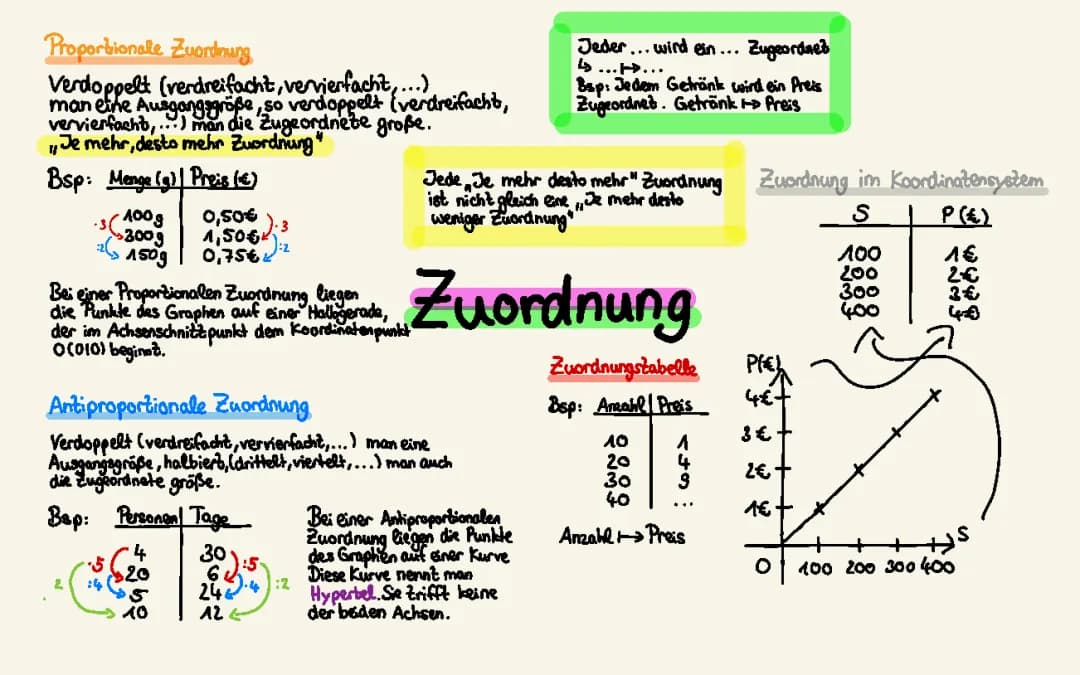 Proportionale Zuordnung
Verdoppelt (verdreifacht, vervierfacht, ...)
man eine Ausgangsgröße, so verdoppelt (verdreifacht,
vervierfacht, ...) man die Zugeordnete große.
„Je mehr, desto mehr Zuordnung"
Bsp: Menge (g) | Preis (€)
·3 100g 0,50€ ·3
300g 1,50€
:2 150g 0,75€ :2
Bei einer Proportionalen Zuordnung liegen
die Punkte des Graphen auf einer Halbgerade,
der im Achsenschnittpunkt dem Koordinatenpunkt
O(0|0) beginnt.
Antiproportionale Zuordnung
Verdoppelt (verdreifacht, vervierfacht, ...) man eine
Ausgangsgröße, halbiert, (drittelt, viertelt, ...) man auch
die Zugeordnete größe.
Bsp: Personen | Tage
4 30
·5 20 6 :5
2 :4 5 24 ·4 :2
10 12
Bei einer Antiproportionalen
Zuordnung liegen die Punkte
des Graphen auf einer Kurve
Diese Kurve nennt man
Hyperbel. Se trifft keine
der beiden Achsen.
Jeder ... wird ein ... Zugeordnet
↳ ... ↦ ...
Bsp: Jedem Getränk wird ein Preis
Zugeordnet. Getränk ↦ Preis
Jede „Je mehr desto mehr" Zuordnung
ist nicht gleich eine „Je mehr desto
weniger Zuordnung"
Zuordnung
Zuordnungstabelle
Bsp: Anzahl | Preis
10 1
20 4
30 9
40 ...
Anzahl ↦ Preis
Zuordnung im Koordinatensystem
S P (€)
100 1€
200 2€
300 3€
400 4€
P(€)
4€
3€
2€
1€
S
0 100 200 300 400